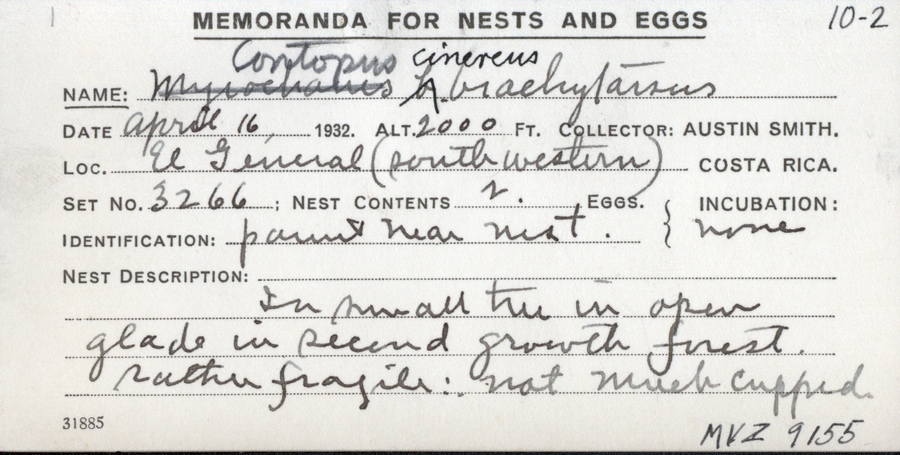 MEMORANDA FOR NESTS AND EGGS 10-2
Contopus cinereus
NAME: Myiochanes b. brachytarsus
DATE April 16 1932. ALT. 2000 FT. COLLECTOR: AUSTIN SMITH.
LOC. El General (southwestern) COSTA RICA.
SET NO. 3266; NEST CONTENTS 2. EGGS. } INCUBATION:
IDENTIFICATION: parent near nest. } none
NEST DESCRIPTION:
In small tree in open
glade in second growth forest.
Rather fragile: not much cupped.
31885
MVZ 9155